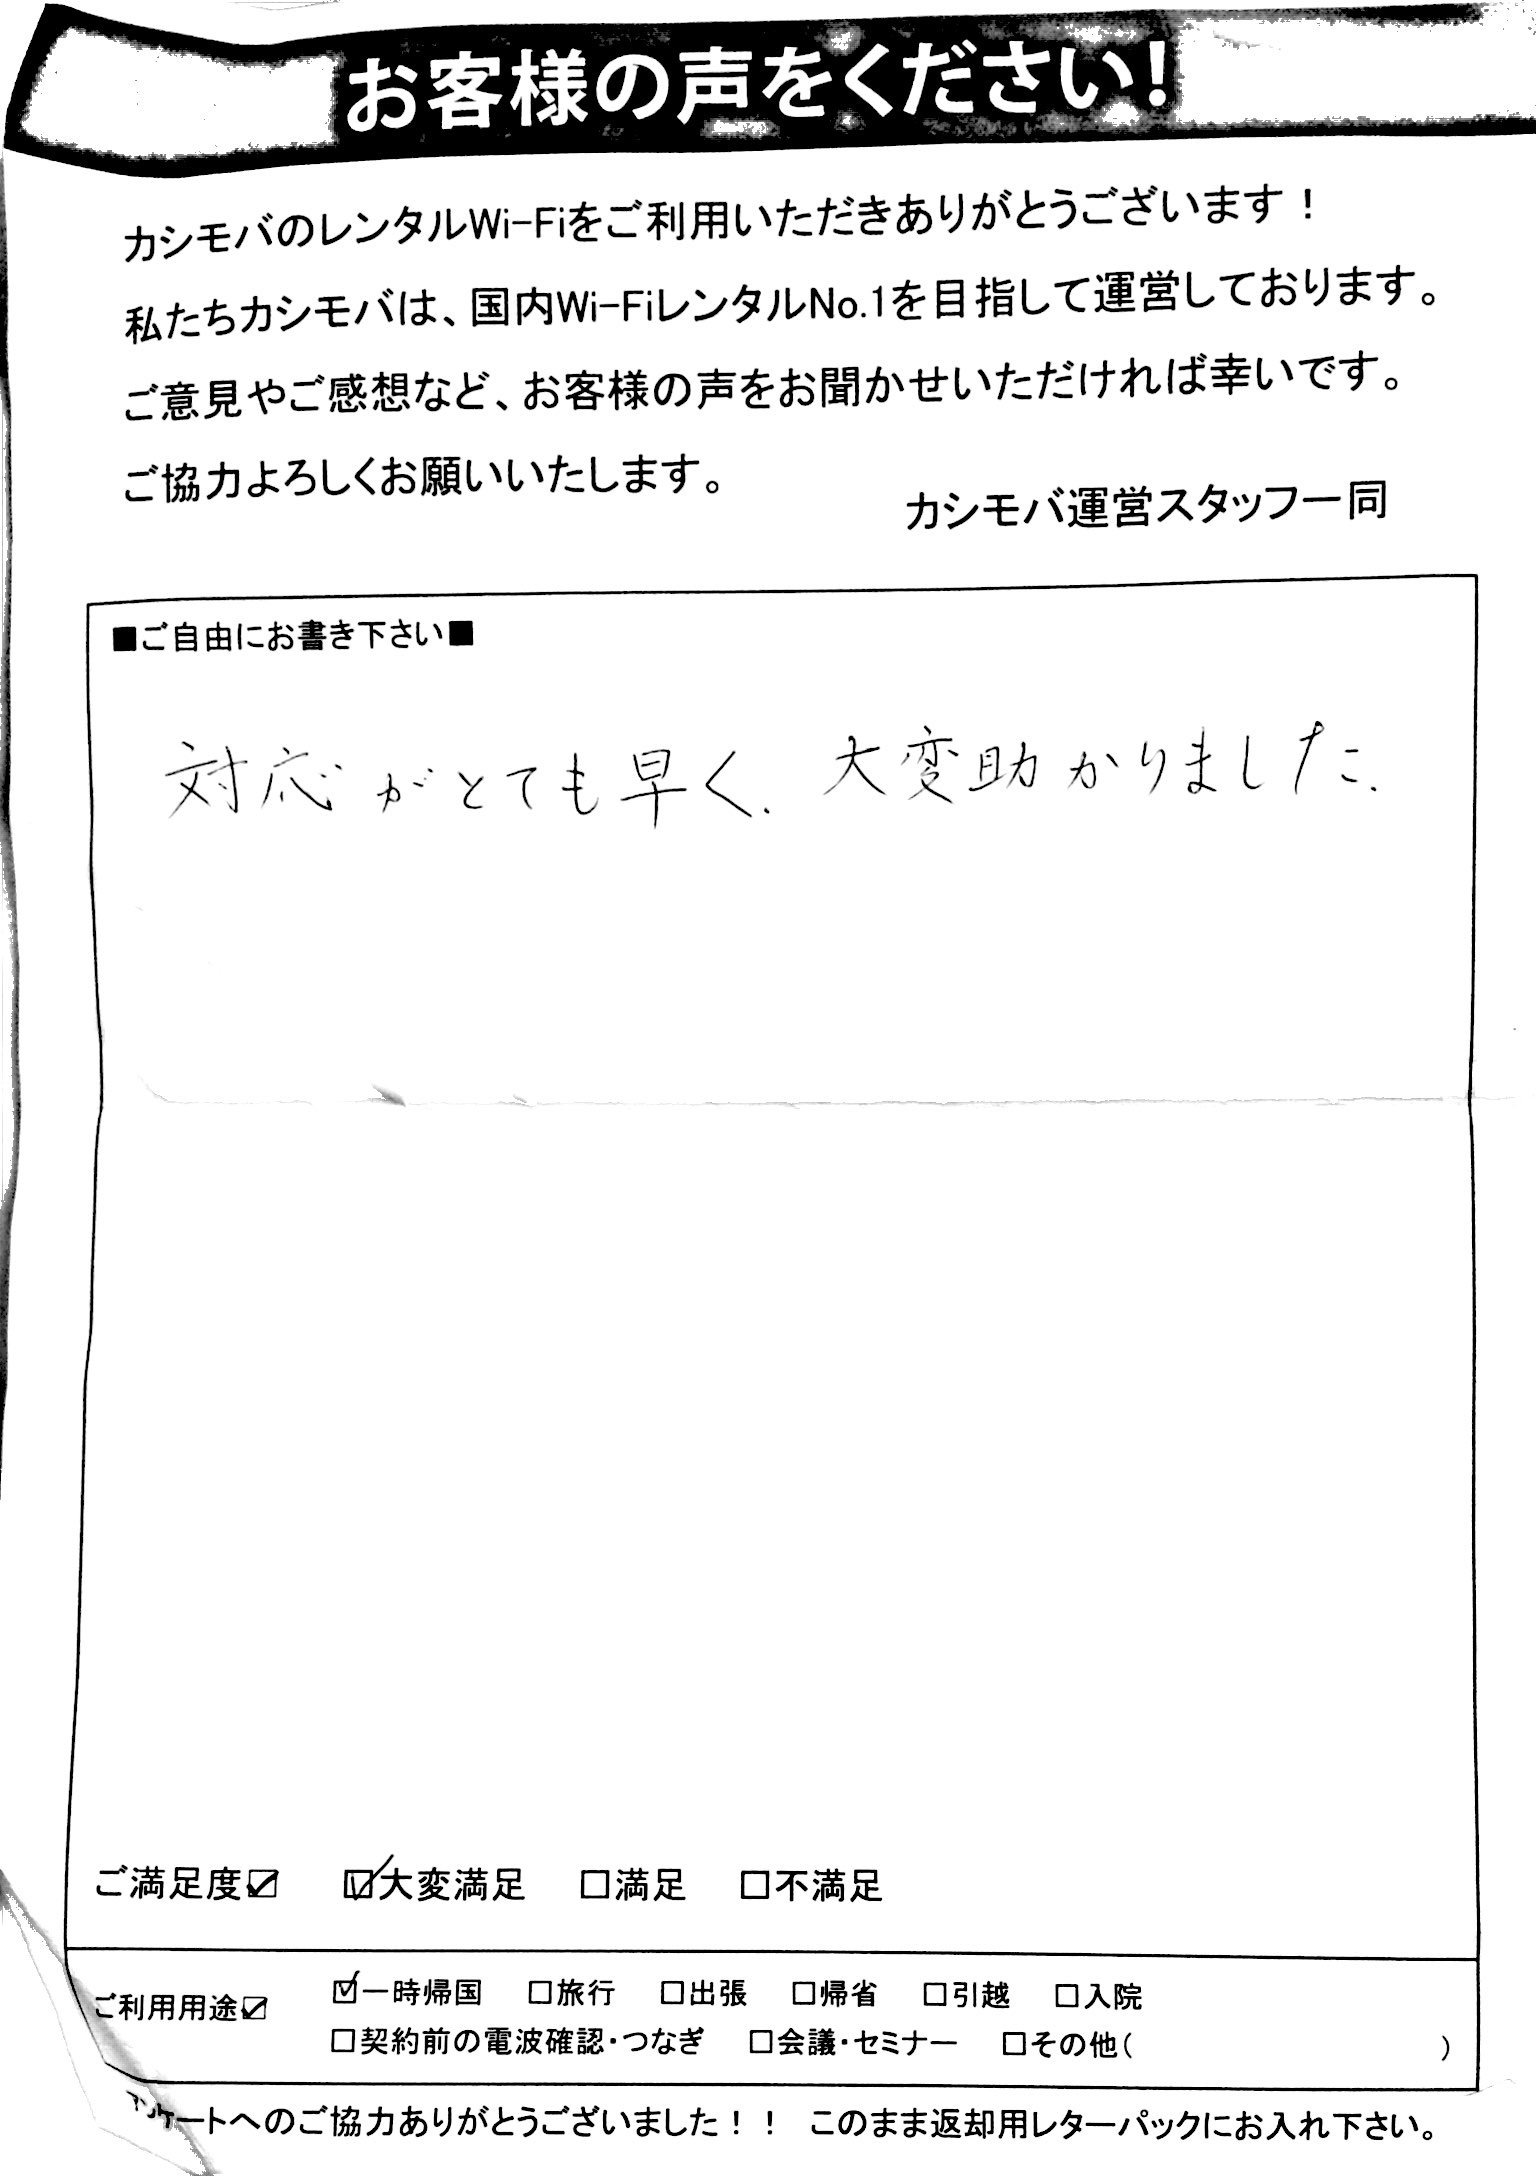 お客様の声をください!
カシモバのレンタルWi-Fiをご利用いただきありがとうございます！
私たちカシモバは、国内Wi-FiレンタルNo.1を目指して運営しております。
ご意見やご感想など、お客様の声をお聞かせいただければ幸いです。
ご協力よろしくお願いいたします。
カシモバ運営スタッフ一同
■ご自由にお書き下さい■
対応がとても早く、大変助かりました.
ご満足度☑ ☑大変満足 □満足 □不満足
ご利用用途☑ ☑一時帰国 □旅行 □出張 □帰省 □引越 □入院
□契約前の電波確認・つなぎ □会議・セミナー □その他( )
アンケートへのご協力ありがとうございました！！ このまま返却用レターパックにお入れ下さい。